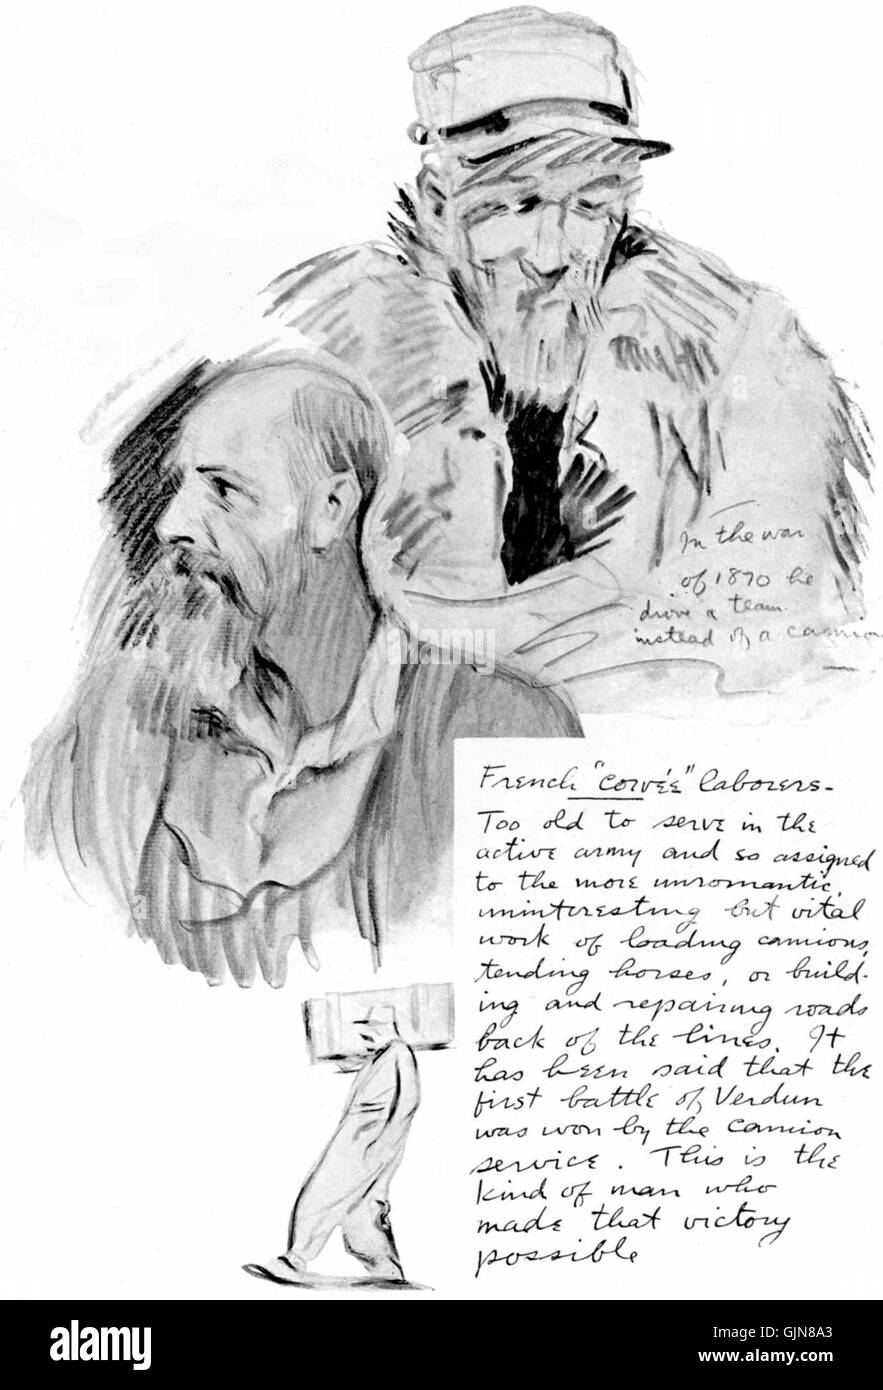 In the war
of 1870 he
drove a team
instead of a camion
French "corvée" laborers-
Too old to serve in the
active army and so assigned
to the more unromantic,
uninteresting but vital
work of loading camions,
tending horses, or build-
ing and repairing roads
back of the lines. It
has been said that the
first battle of Verdun
was won by the camion
service. This is the
kind of man who
made that victory
possible
alamy
alamy
Image ID: GJN8A3
www.alamy.com